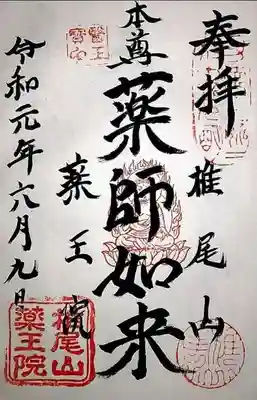 奉拝
椎尾山
本尊薬師如来
薬王院
令和元年六月九日
医王宝印
椎尾山
薬王院